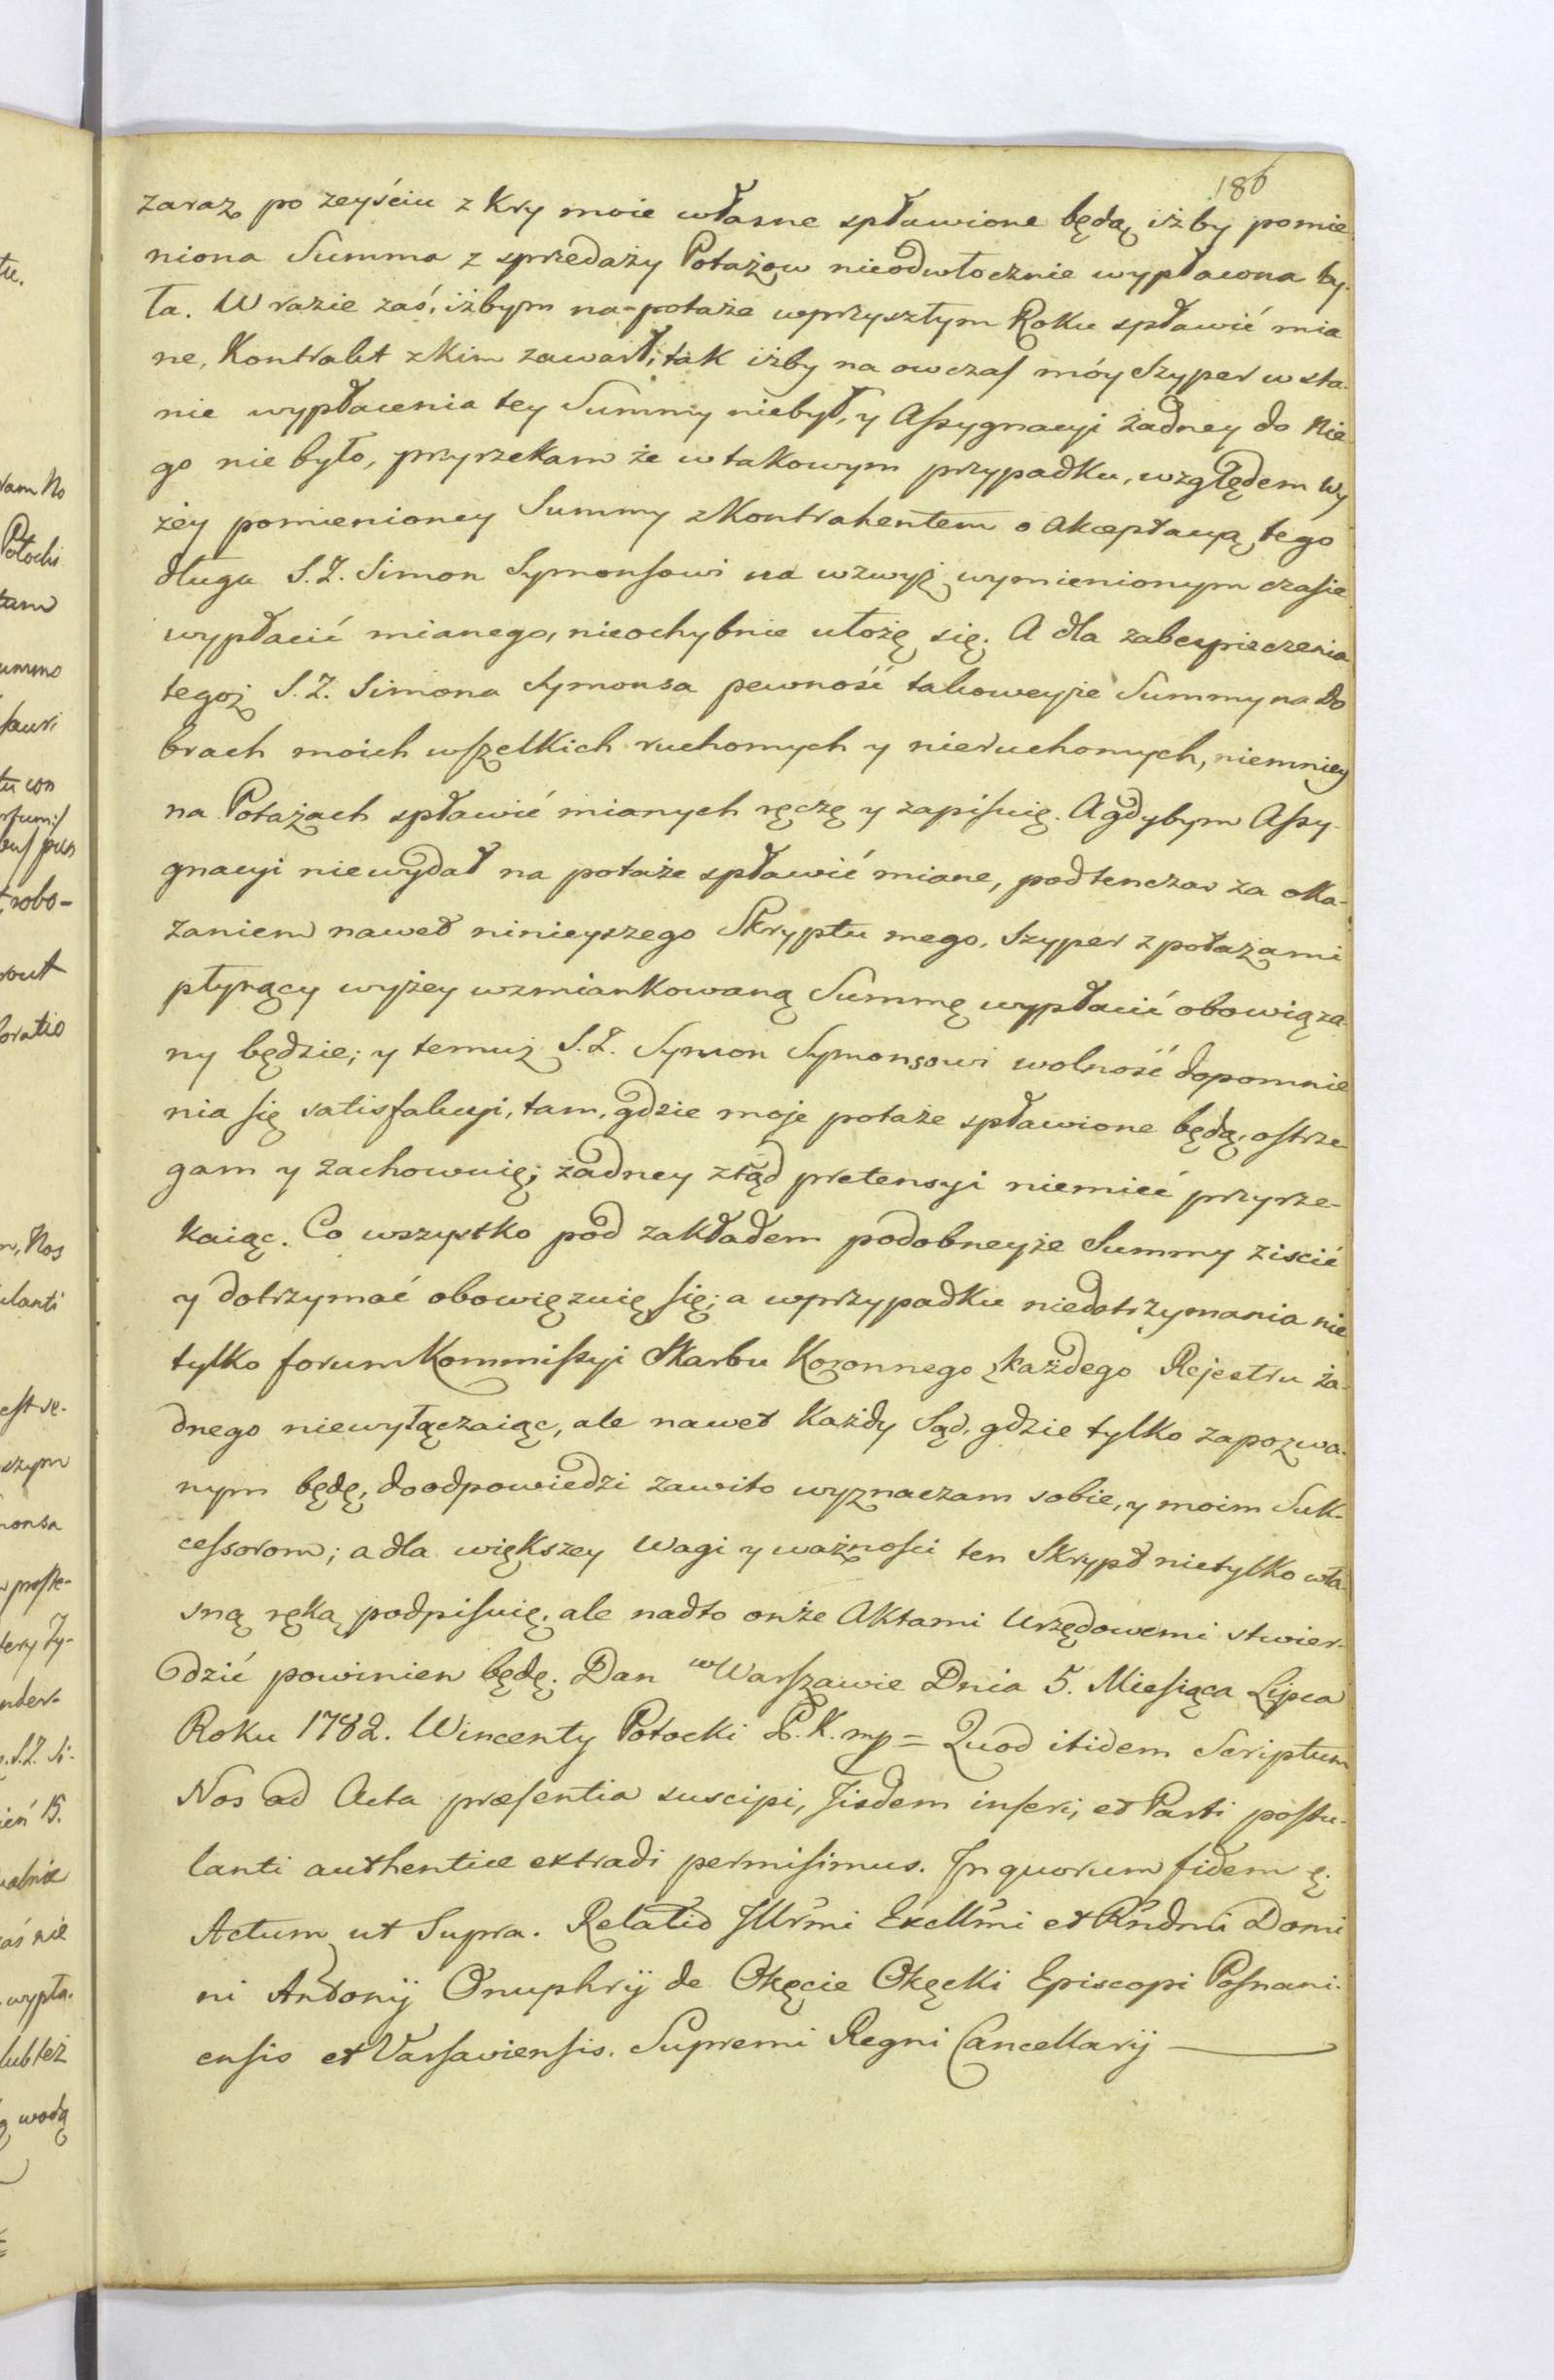 186
zaraz po zeyściu z Kry moie własne spławione będą iżby pomie
niona Summa z sprzedaży Potażow nieodwłocznie wypłacona by-
ła. W razie zaś, iżbym na-potaże wprzyszłym Roku spławić mia
ne, Kontrakt zkim zawarł, tak iżby na owczas móy Szyper w sta-
nie wypłacenia tey Summy niebył, y Assygnacyi żadney do Nie
go nie było, przyrzekam że wtakowym przypadku, względem Wy
żey pomienioney Summy zKontrahentem o Akceptacyą tego
długu S.Z. Simon Symonsowi na wzwyż wymienionym czasie
wypłacić mianego, nieochybnie ułożę się. A dla zabespieczenia
tegoż S.Z. Simona Symonsa pewność takoweyże Summy na Do
brach moich wszelkich ruchomych y nieruchomych, niemniey
na Potażach spławić mianych ręczę y zapisuię. Agdybym Assy-
gnacyi niewydał na potaże spławić miane, podtenczas za oka-
zaniem nawet ninieyszego Skryptu mego, Szyper z potażami
płynący wyżey wzmiankowaną Summę wypłacić obowiąza-
ny będzie; y temuż S.Z. Symon Symonsowi wolność dopomnie
nia się satisfakcyi, tam, gdzie moje potaże spławione będą, ostrze
gam y zachowuię; żadney ztąd pretensyi niemieć przyrze-
kaiąc. Co wszystko pod zakładem podobneyże Summy ziscić
y dotrzymać obowięzuię się; a wprzypadku niedotrzymania nie
tylko forum Kommissyi Skarbu Koronnego zkażdego Rejestru ża-
dnego niewyłączaiąc, ale nawet Każdy Sąd, gdzie tylko zapozwa-
nym będę, doodpowiedzi zawito wyznaczam sobie, y moim Suk-
cessorom; adla większey Wagi y ważności ten Skrypt nietylko wła-
sną ręką podpisuię, ale nadto onże Aktami Urzędowemi stwier-
dzić powinien będę. Dan w Warszawie Dnia 5. Miesiąca Lipca
Roku 1782. Wincenty Potocki P.K. mp = Quod itidem Scriptum
Nos ad Acta præsentia suscipi, Iisdem inseri, et Parti postu-
lanti authentice extradi permisimus. In quorum fidem &.
Actum ut Supra. Relatio Illrmi Excllmi et Rndmi Domi
ni Antonij Onuphrij de Okęcie Okęcki Episcopi Posnani-
ensis et Varsaviensis. Supremi Regni Cancellarij